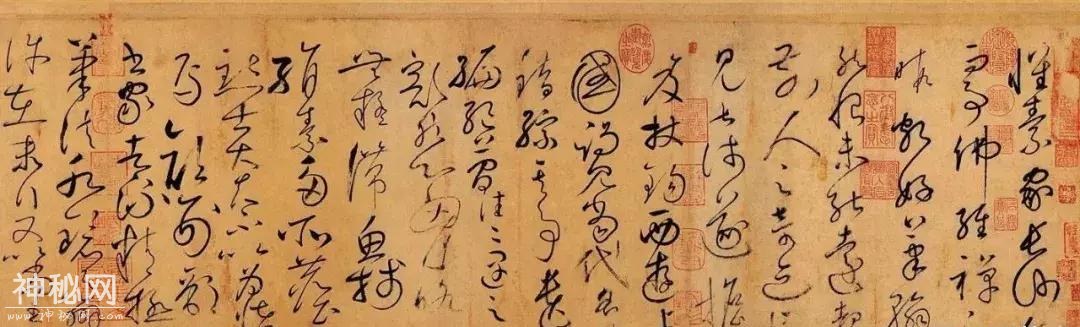 懷素家長沙
事佛經禪
暇頗好筆翰
然恨未能遠覩
前人之奇迹
見甚淺遂擔
笈杖錫西遊上
國謁見當代名
錯綜其事遺
編絕簡往往遇之
豁然心胸略
無疑滯魚牋
絹素多所塵
點士大夫不以為怪
焉顏刑部
書家者流精極
筆法水鏡
許在末行又以尚
神秘网